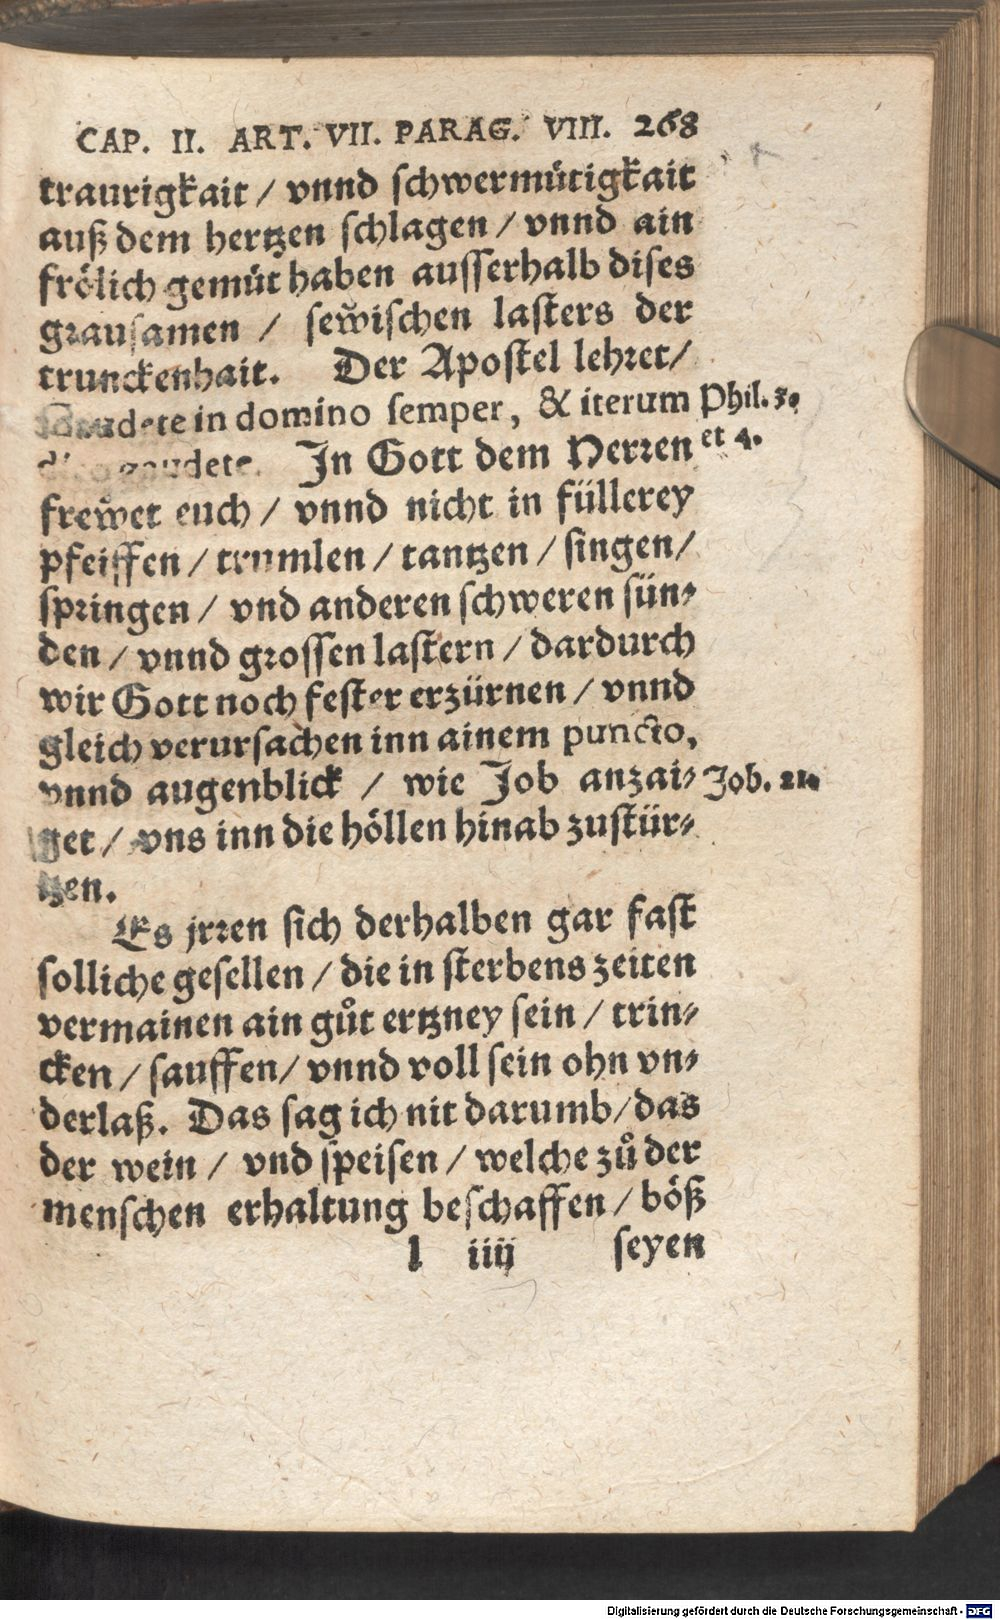 CAP. II. ART. VII. PARAG. VIII. 268
traurigkait / vnnd schwermütigkait
auß dem hertzen schlagen / vnnd ain
frölich gemüt haben ausserhalb dises
grausamen / sewischen lasters der
trunckenhait. Der Apostel lehret/
Gaudete in domino semper, & iterum Phil. 3.
gaudete. In Gott dem Herren et 4.
frewet euch / vnnd nicht in füllerey
pfeiffen / trumlen / tantzen / singen/
springen / vnd anderen schweren sün-
den / vnnd grossen lastern / dardurch
wir Gott noch fester erzürnen / vnnd
gleich verursachen inn ainem puncto,
vnnd augenblick / wie Job anzai- Job. 21.
get / vns inn die höllen hinab zustür-
tzen.
Es jrren sich derhalben gar fast
solliche gesellen / die in sterbens zeiten
vermainen ain gůt ertzney sein / trin-
cken / sauffen/ vnnd voll sein ohn vn-
derlaß. Das sag ich nit darumb/das
der wein / vnd speisen / welche zů der
menschen erhaltung beschaffen / böß
l iiij seyen
Digitalisierung gefördert durch die Deutsche Forschungsgemeinschaft - DFG